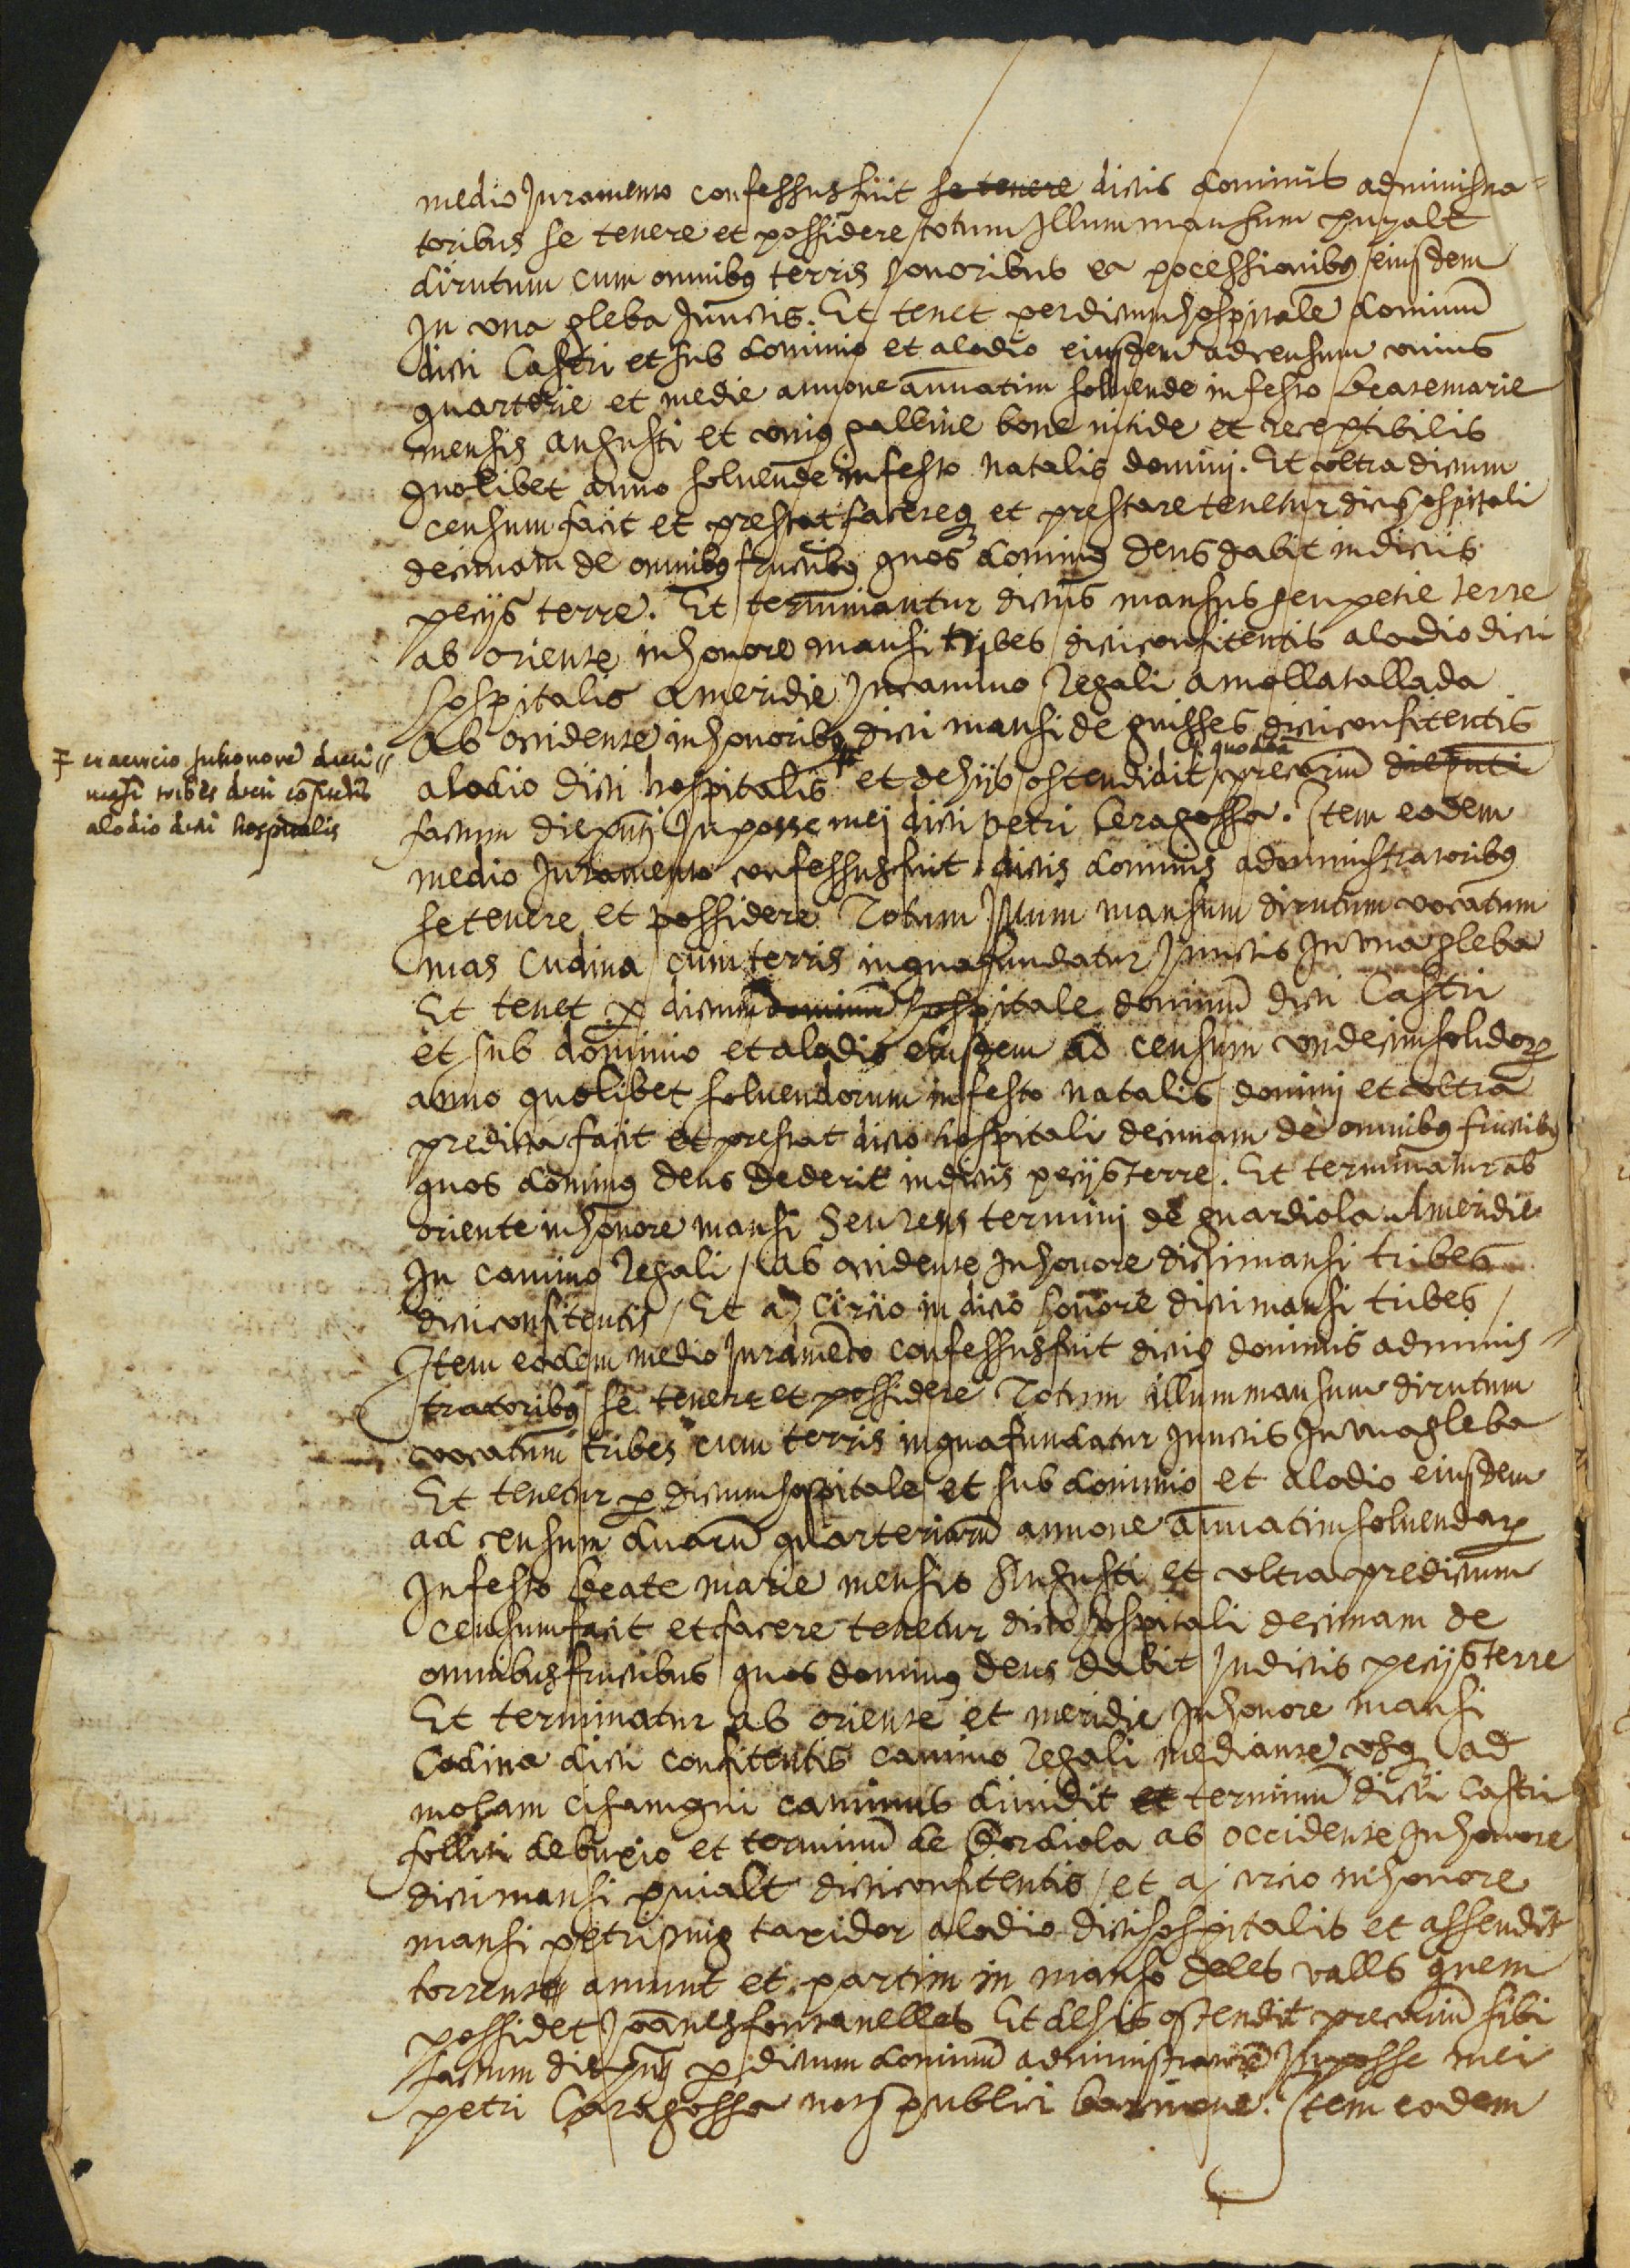 medio Juramento confessus fuit se tenere dictis dominis administra=
toribus se tenere et possidere totum Illum mansum puyalt
dirutum cum omnibus terris honoribus et pocessionibus eiusdem
In una gleba Junctis. Et tenet per dictum hospitale dominum
dicti Castri et sub dominio et alodio eiusdem ad censum unius
quarterie et medie annone annuatim soluende in festo beate marie
mensis augusti et unius galline bone nitide et receptibilis
quolibet anno soluende in festo natalis domini. Et ultra dictum
censum facit et prestat facereq et prestare tenetur dicto hospitali
decimam de omnibus fructibus quos dominus deus dabit in dictis
pecijs terre. Et terminantur dictus mansus seu petie terre
ab oriente in honore mansi tribes dicti confitentis alodio dicti
hospitalis a meridie In camino Regali a molla tallada
ab occidente in honoribus dicti mansi de guisses dicti confitentis
Ŧ et a circio in honore dicti
mansi tribes dicti cōfitentis
alodio dicti hospitalis
quoddā
alodio dicti hospitalis Ŧ et de hijs ostendidit precarium die puti
factum die punti In posse mej dicti petri Ceragossa. Item eodem
medio Juramento confessus fuit dictis dominis administratoribus
se tenere et possidere Totum Illum mansum dirutum vocatum
mas Cudina cum terris in qua fundatur Junctis In una gleba
Et tenet p dictum dominum hospitale dominum dicti Castri
et sub dominio et alodio eiusdem ad censum undecim solidorum
anno quolibet soluendorum in festo natalis domini et ultra
predicta facit et prestat dicto hospitali decimam de omnibus fructibus
quos dominus deus dederit in dictis pecijs terre. Et terminatur ab
oriente in honore mansi termini de guardiola A meridie
In camino Regali / ab occidente In honore dicti mansi tribes
dicti confitentis / Et a circio in dicto honore dicti mansi tribes /
Item eodem medio Juramento confessus fuit dictis dominis adminis=
tratoribus se tenere et possidere Totum illum mansum dirutum
vocatum tribes cum terris in qua fundatur Junctis In una gleba
Et tenetur p dictum hospitale et sub dominio et alodio eiusdem
ad censum duarū quarteriarū annone annuatim soluendarum
In festo beate marie mensis Augusti et ultra predictum
censum facit et facere tenetur dicto hospitali decimam de
omnibus fructibus quos dominus deus dabit In dictis pecijs terre
Et terminatur ab oriente et meridie In honore mansi
Codina dicti confitentis camino Regali mediante usq ad
molam caminus diuidit et terminum dicti Castri
follitti de buxio et terminum de Gordiola ab occidente In honore
dicti mansi puialt dicti confitentis / et a circio in honore
mansi petri puig taxidor alodio dicti hospitalis et assendit
torrente amunt et partim in manso deles valls quem
possidet Joānes fontanelles Et de his ostendit precarium sibi
factum die p dictum dominum administratorē In posse mei
petri Caragossa notarii publici barcinone. Item eodem